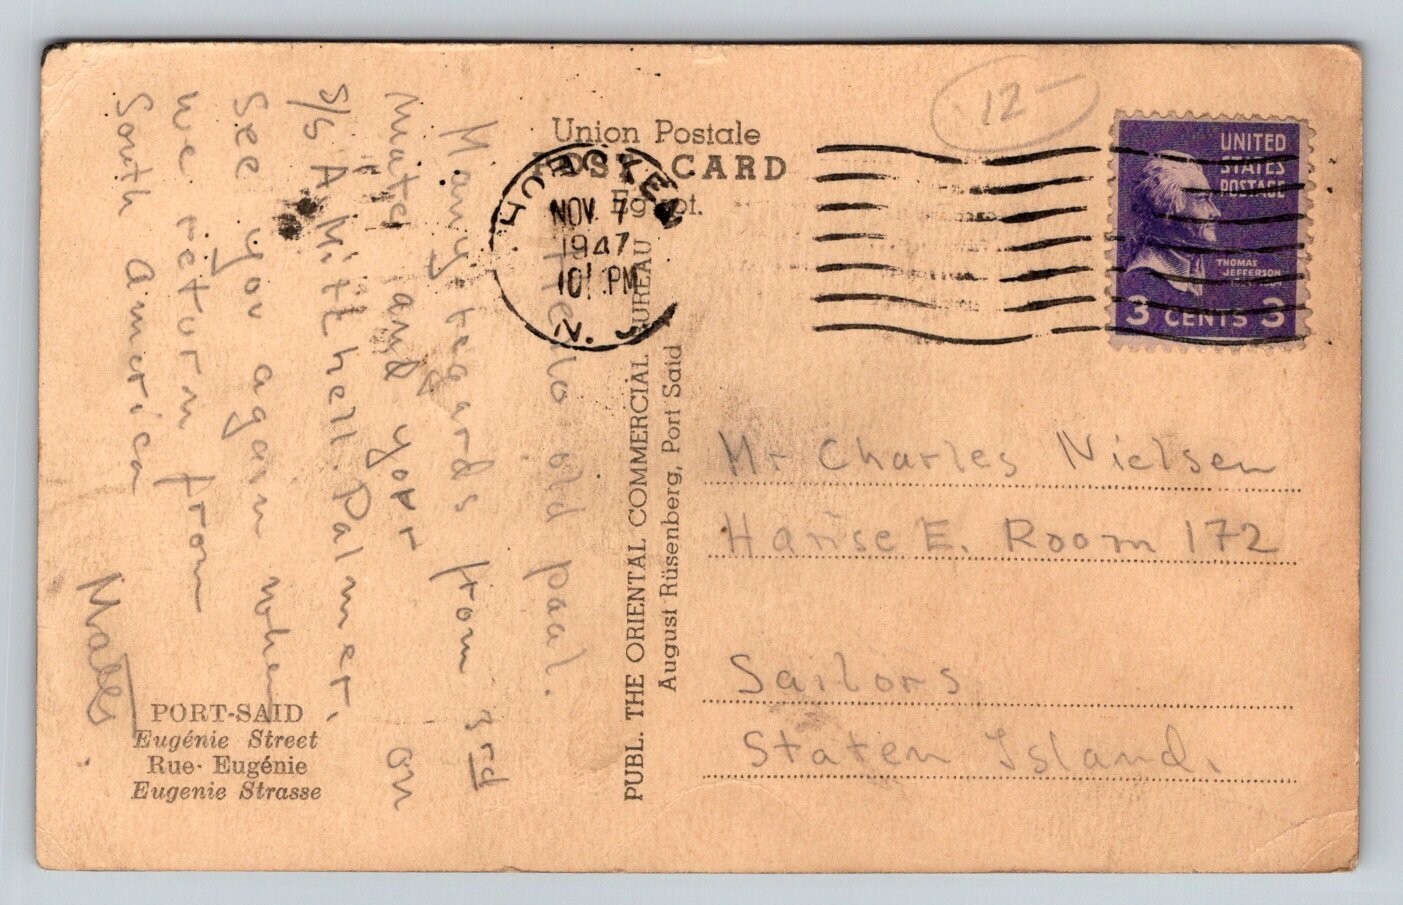 12-
Union Postale
POST CARD
Egypt.
HOBOKEN
NOV 7
1947
10 PM
N.J.
UNITED
STATES
POSTAGE
THOMAS
JEFFERSON
3 CENTS 3
Hello old paal.
Many regards from 3rd
mate and your on
S/S A Mitchell. Palmer.
See you again when
we return from
South America
PUBL. THE ORIENTAL COMMERCIAL BUREAU
August Rüsenberg, Port Said
Mr Charles Nielsen
E. Room 172
Sailors
Staten Island.
PORT-SAID
Eugénie Street
Rue Eugénie
Eugenie Strasse